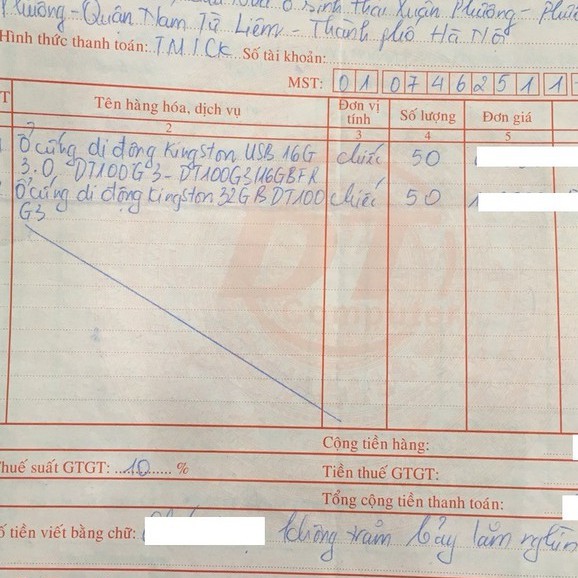 Phường - Quận Nam Từ Liêm - Thành phố Hà Nội
Hình thức thanh toán: TM/CK Số tài khoản:
MST: 01 07462511
Tên hàng hóa, dịch vụ Đơn vị tính Số lượng Đơn giá
2 3 4 5
Ổ cứng di động Kingston USB 16G chiếc 50
3.0, DT100G3 - DT100G3/16GBFR
Ổ cứng di động Kingston 32GB DT100 chiếc 50
G3
DT
Computer
Cộng tiền hàng:
Thuế suất GTGT: 10 % Tiền thuế GTGT:
Tổng cộng tiền thanh toán:
Số tiền viết bằng chữ: không trăm bảy lăm nghìn